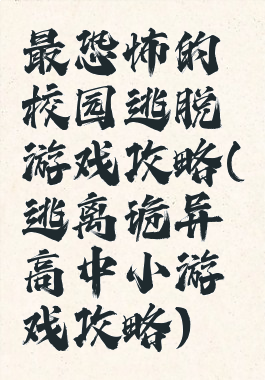 最恐怖的
校园逃脱
游戏攻略(
逃离诡异
高中小游
戏攻略)